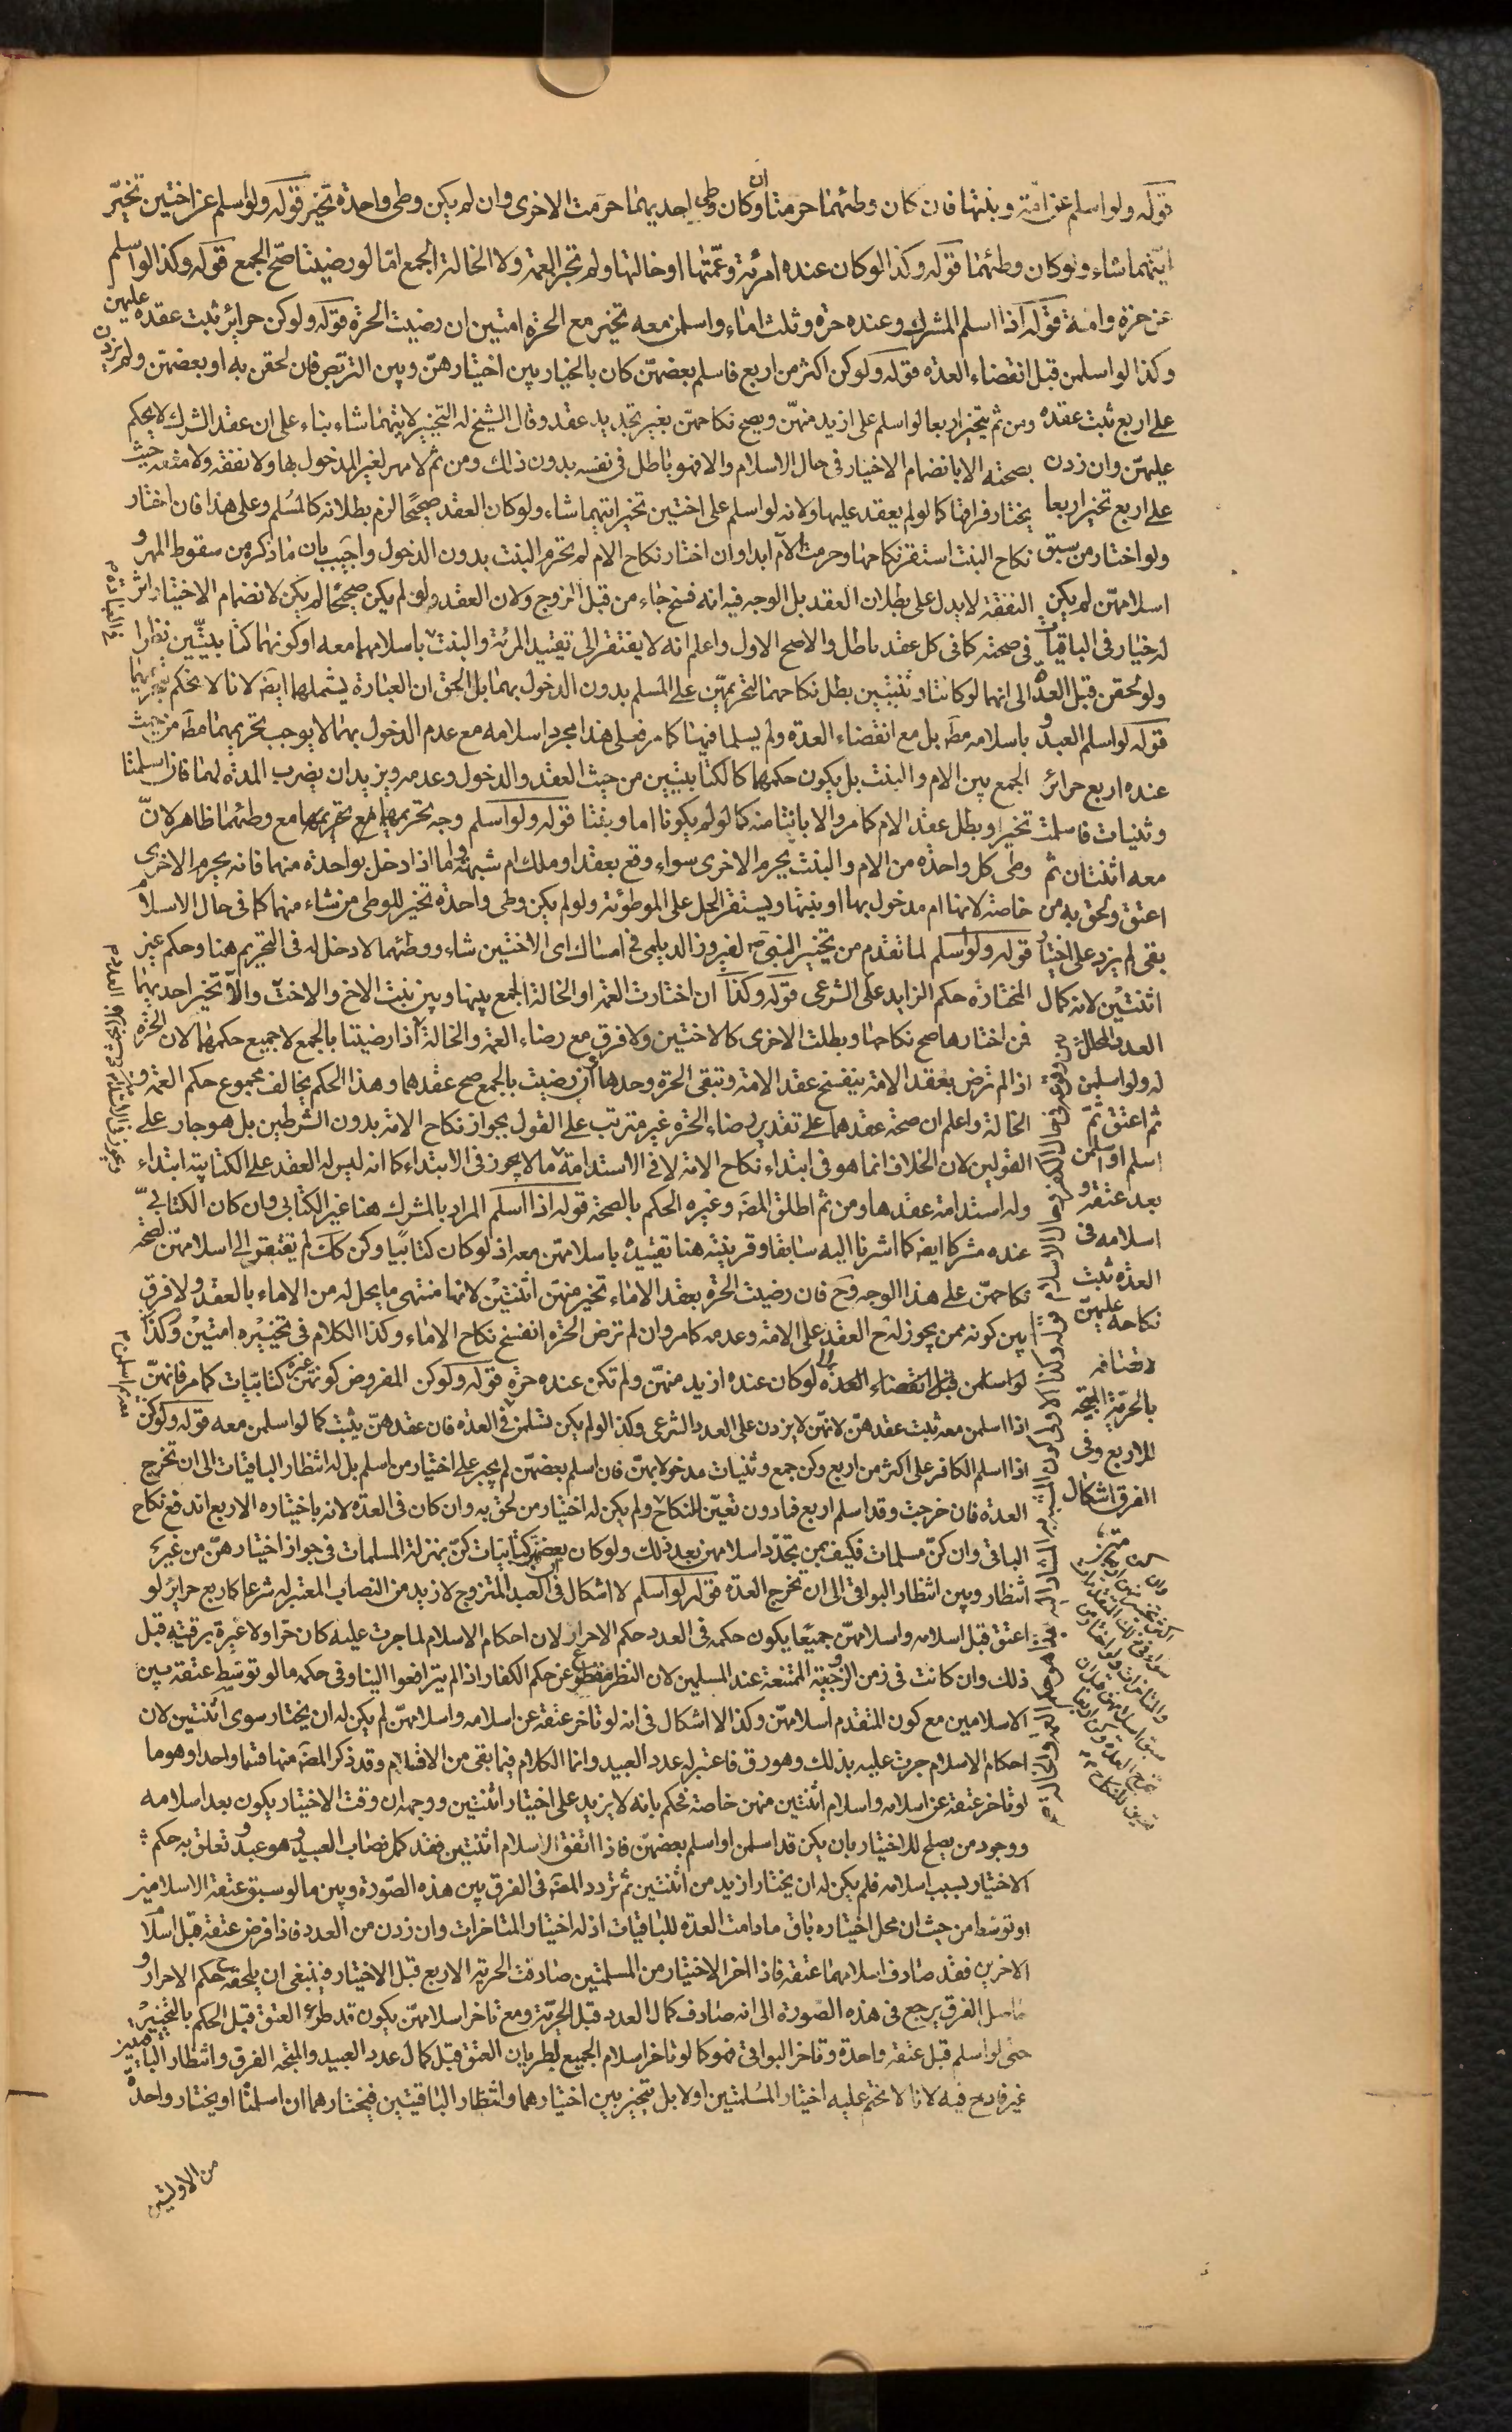 قوله ولو اسلم عن امّة وبنتها فان كان وطئهما حرمتا وان كان وطى احديهما حرمت الاخرى وان لم يكن وطى واحدة تخير قوله ولو اسلم عن اختين تخيّر
ايّتهما شاء ولو كان وطئهما قوله وكذا لو كان عنده امرئة وعمّتها او خالتها ولم تجز العمة ولا الخالة الجمع امّا لو رضيتا صحّ الجمع قوله وكذا لو اسلم
عن حرّة وامة قوله اذا اسلم المشرك وعنده حرة وثلث اماء واسلمن معه تخير مع الحرّة امتين ان رضيت الحرّة قوله ولو كن حرائر ثبت عقده عليهن
وكذا لو اسلمن قبل انقضاء العدّة قوله ولو كن اكثر من اربع فاسلم بعضهنّ كان بالخيار بين اختيارهنّ وبين التربّص فان لحقن به او بعضهنّ ولم يزدن
على اربع ثبت عقده
عليهنّ وان زدن
على اربع تخير اربعا
ولو اختار من سبق
اسلامهنّ لم يكن
له خيار فى الباقيات
ولو لحقن قبل العدّة
قوله لو اسلم العبد و
عنده اربع حرائر
وثنيات فاسلمت
معه اثنتان ثم
اعتق ولحق به من
بقى لم يزد على اختيار
اثنتين لانه كمال
العدد المحلل
له ولو اسلمن
ثم اعتق ثمّ
اسلم او اسلمن
بعد عتقه و
اسلامه فى
العدّة ثبت
نكاحه عليهنّ
لاتصافه
بالحرّية المبيحة
للاربع وفى
الفرق اشكال
ومن ثم يتخير اربعا لو اسلم على ازيد منهنّ ويصح نكاحهنّ بغير تجديد عقد وقال الشيخ له التخيير لايتهما شاء بناء على ان عقد الشرك لا يحكم
بصحته الا بانضمام الاختيار فى حال الاسلام والا فهو باطل فى نفسه بدون ذلك ومن ثم لا مهر لغير المدخول بها ولا نفقه ولا متعه حيث
يختار فراقها كما لو لم يعقد عليها ولانه لو اسلم على اختين تخير ايتهما شاء ولو كان العقد صحيحًا لزم بطلانه كالمسلم وعلى هذا فان اختار
نكاح البنت استقر نكاحها وحرمت الام ابدا وان اختار نكاح الام لم تحرم البنت بدون الدخول واجيب بان ما ذكره من سقوط المهر و
النفقة لا يدل على بطلان العقد بل الوجه فيه انه فسخ جاء من قبل الزوج ولان العقد ولو لم يكن صحيحًا لم يكن لانضمام الاختيار اثر
فى صحته كما فى كل عقد باطل والاصح الاول واعلم انه لا يفتقر الى تقييد المرئة والبنت باسلامهما معه او كونهما كتابيتين نظرا
الى انهما لو كانتا وثنيتين بطل نكاحهما لتحريمهنّ على المسلم بدون الدخول بهما بل الحق ان العبارة يشملهما ايضا لانا لا نحكم بتحريمهما
باسلامه مط بل مع انقضاء العدة ولم يسلما فيها كما مر فعلى هذا مجرد اسلامه مع عدم الدخول بهما لا يوجب تحريمهما مط من حيث
الجمع بين الام والبنت بل يكون حكمهما كالكتابيتين من حيث العقد والدخول وعدمه ويزيد ان يضرب المدة لهما فان اسلمتا
تخير او بطل عقد الام كما مر والا بانتا منه كما لو لم يكونا اما وبنتا قوله ولو اسلم وجه تحريمهما مع وطئهما ظاهر لانّ
وطى كل واحدة من الام والبنت يحرم الاخرى سواء وقع بعقد او ملك ام شبهة واما اذا دخل بواحدة منهما فانه يحرم الاخرى
خاصة لانها ام مدخول بها او بنتها ويستقر الحل على الموطوئة ولو لم يكن وطى واحدة تخير للوطى من شاء منهما كما فى حال الاسلام
قوله ولو اسلم لما تقدم من تخيير النبى ص لفيروز الديلمى فى امساك اى الاختين شاء ووطئهما لا دخل له فى التحريم هنا وحكم غير
المختارة حكم الزايد على الشرعى قوله وكذا ان اختارت العمة او الخالة الجمع بينها وبين بنت الاخ والاخت والا تخير احديهما
فمن اختارها صح نكاحها وبطلت الاخرى كالاختين ولا فرق مع رضاء العمة والخالة اذا رضيتا بالجمع لا جميع حكمهما لان الحرّة
اذا لم ترض بعقد الامة ينفسخ عقد الامة وتبقى الحرة وحدها وان رضيت بالجمع صح عقدهما وهذا الحكم يخالف مجموع حكم العمة و
الخالة واعلم ان صحة عقدهما على تقدير رضاء الحرة غير مترتب على القول بجواز نكاح الامة بدون الشرطين بل هو جار على
القولين لان الخلاف انما هو فى ابتداء نكاح الامة لا فى الاستدامة ما لا يجوز فى الابتداء كما انه ليس له العقد على الكتابية ابتداء
وله استدامة عقدها ومن ثم اطلق المص وغيره الحكم بالصحة قوله اذا اسلم المراد بالمشرك هنا غير الكتابى وان كان الكتابىّ
عنده مشركا ايضا كما اشرنا اليه سابقا وقرينته هنا تقييده باسلامهنّ معه اذ لو كان كتابيا وكن كك لم يفتقر الى اسلامهنّ لصحّة
نكاحهنّ على هذا الوجه وح فان رضيت الحرّة بعقد الاماء تخير منهنّ اثنتين لانهما منتهى ما يحل له من الاماء بالعقد ولا فرق
بين كونه ممن يجوز له ح العقد على الامة وعدمه كما مر وان لم ترض الحرة انفسخ نكاح الاماء وكذا الكلام فى تخييره امتين وكذا
لو اسلمن قبل انقضاء العدة لو كان عنده ازيد منهنّ ولم تكن عنده حرّة قوله ولو كن المفروض كونهنّ غير كتابيّات كما مر فانهنّ
اذا اسلمن معه ثبت عقدهنّ لانهنّ لا يزدن على العدد الشرعى وكذا لو لم يكن تسلمن فى العدة فان عقدهنّ يثبت كما لو اسلمن معه قوله ولو كن
اذا اسلم الكافر على اكثر من اربع وكن جمع وثنيات مدخولا بهنّ فان اسلم بعضهنّ لم يجبر على اختيار من اسلم بل له انتظار الباقيات الى ان تخرج
العدة فان خرجت وقد اسلم اربع فما دون تعيّن للنكاح ولم يكن له اختيار من لحق به وان كان فى العدة لانه باختياره الاربع اندفع نكاح
الباقى وان كنّ مسلمات فكيف بمن تجدّد اسلامهن بعد ذلك ولو كان بعضهن كتابيات كنّ بمنزلة المسلمات فى جواز اختيارهنّ من غير
انتظار وبين انتظار البواقى الى ان تخرج العدة قوله لو اسلم لا اشكال فى ان العبد المتزوج لازيد من النصاب المعتبر له شرعا كاربع حرائر لو
اعتق قبل اسلامه واسلامهنّ جميعًا يكون حكمه فى العدد حكم الاحرار لان احكام الاسلام لما جرت عليه كان حرّا ولا عبرة برقيته قبل
ذلك وان كانت فى زمن الزوجية الممتنعة عند المسلمين لان النظر مقطوع عن حكم الكفار اذا لم يترافعوا الينا وفى حكمه ما لو توسّط عتقه بين
الاسلامين مع كون المتقدم اسلامهنّ وكذا لا اشكال فى انه لو تاخر عتقه عن اسلامه واسلامهنّ لم يكن له ان يختار سوى اثنتين لان
احكام الاسلام جرت عليه بذلك وهو رق فاعتبر له عدد العبيد وانما الكلام فيما بقى من الاقسام وقد ذكر المص منها قسما واحدا وهو ما
لو تاخر عتقه عن اسلامه واسلام اثنتين منهن خاصة فحكم بانه لا يزيد على اختيار اثنتين ووجهه ان وقت الاختيار يكون بعد اسلامه
ووجود من يصلح للاختيار بان يكن قد اسلمن او اسلم بعضهنّ فاذا اتفق الاسلام اثنتين فقد كمل نصاب العبيد وهو عبد وتعلق به حكم
الاختيار بسبب اسلامه فلم يكن له ان يختار ازيد من اثنتين ثم تردد المص فى الفرق بين هذه الصّورة وبين ما لو سبق عتقه الاسلامين
او توسّط من حيث ان محل اختياره باق ما دامت العدة للباقيات اذ له اختيار المتاخرات وان زدن من العدد فاذا فرض عتقه قبل اسلام
الاخرين فقد صادف اسلامهما عتقه فاذا اخر الاختيار من المسلمتين صادفت الحرية الاربع قبل الاختيار فينبغى ان يلحقه حكم الاحرار و
حاصل الفرق يرجع فى هذه الصّورة الى انه صادف كمال العدد قبل الحريّة ومع تاخر اسلامهنّ يكون قد طرء العتق قبل الحكم بالتخيير
حتى لو اسلم قبل عتقه واحدة وتاخر البواقى فهو كما لو تاخر اسلام الجميع لطريان العتق قبل كمال عدد العبيد والمتجه الفرق وانتظار الباقيتين
غير قادح فيه لانا لا نحتم عليه اختيار المسلمتين اولا بل يتخير بين اختيارهما وانتظار الباقيتين فيختارهما ان اسلمتا او يختار واحدة
من الاوليتين